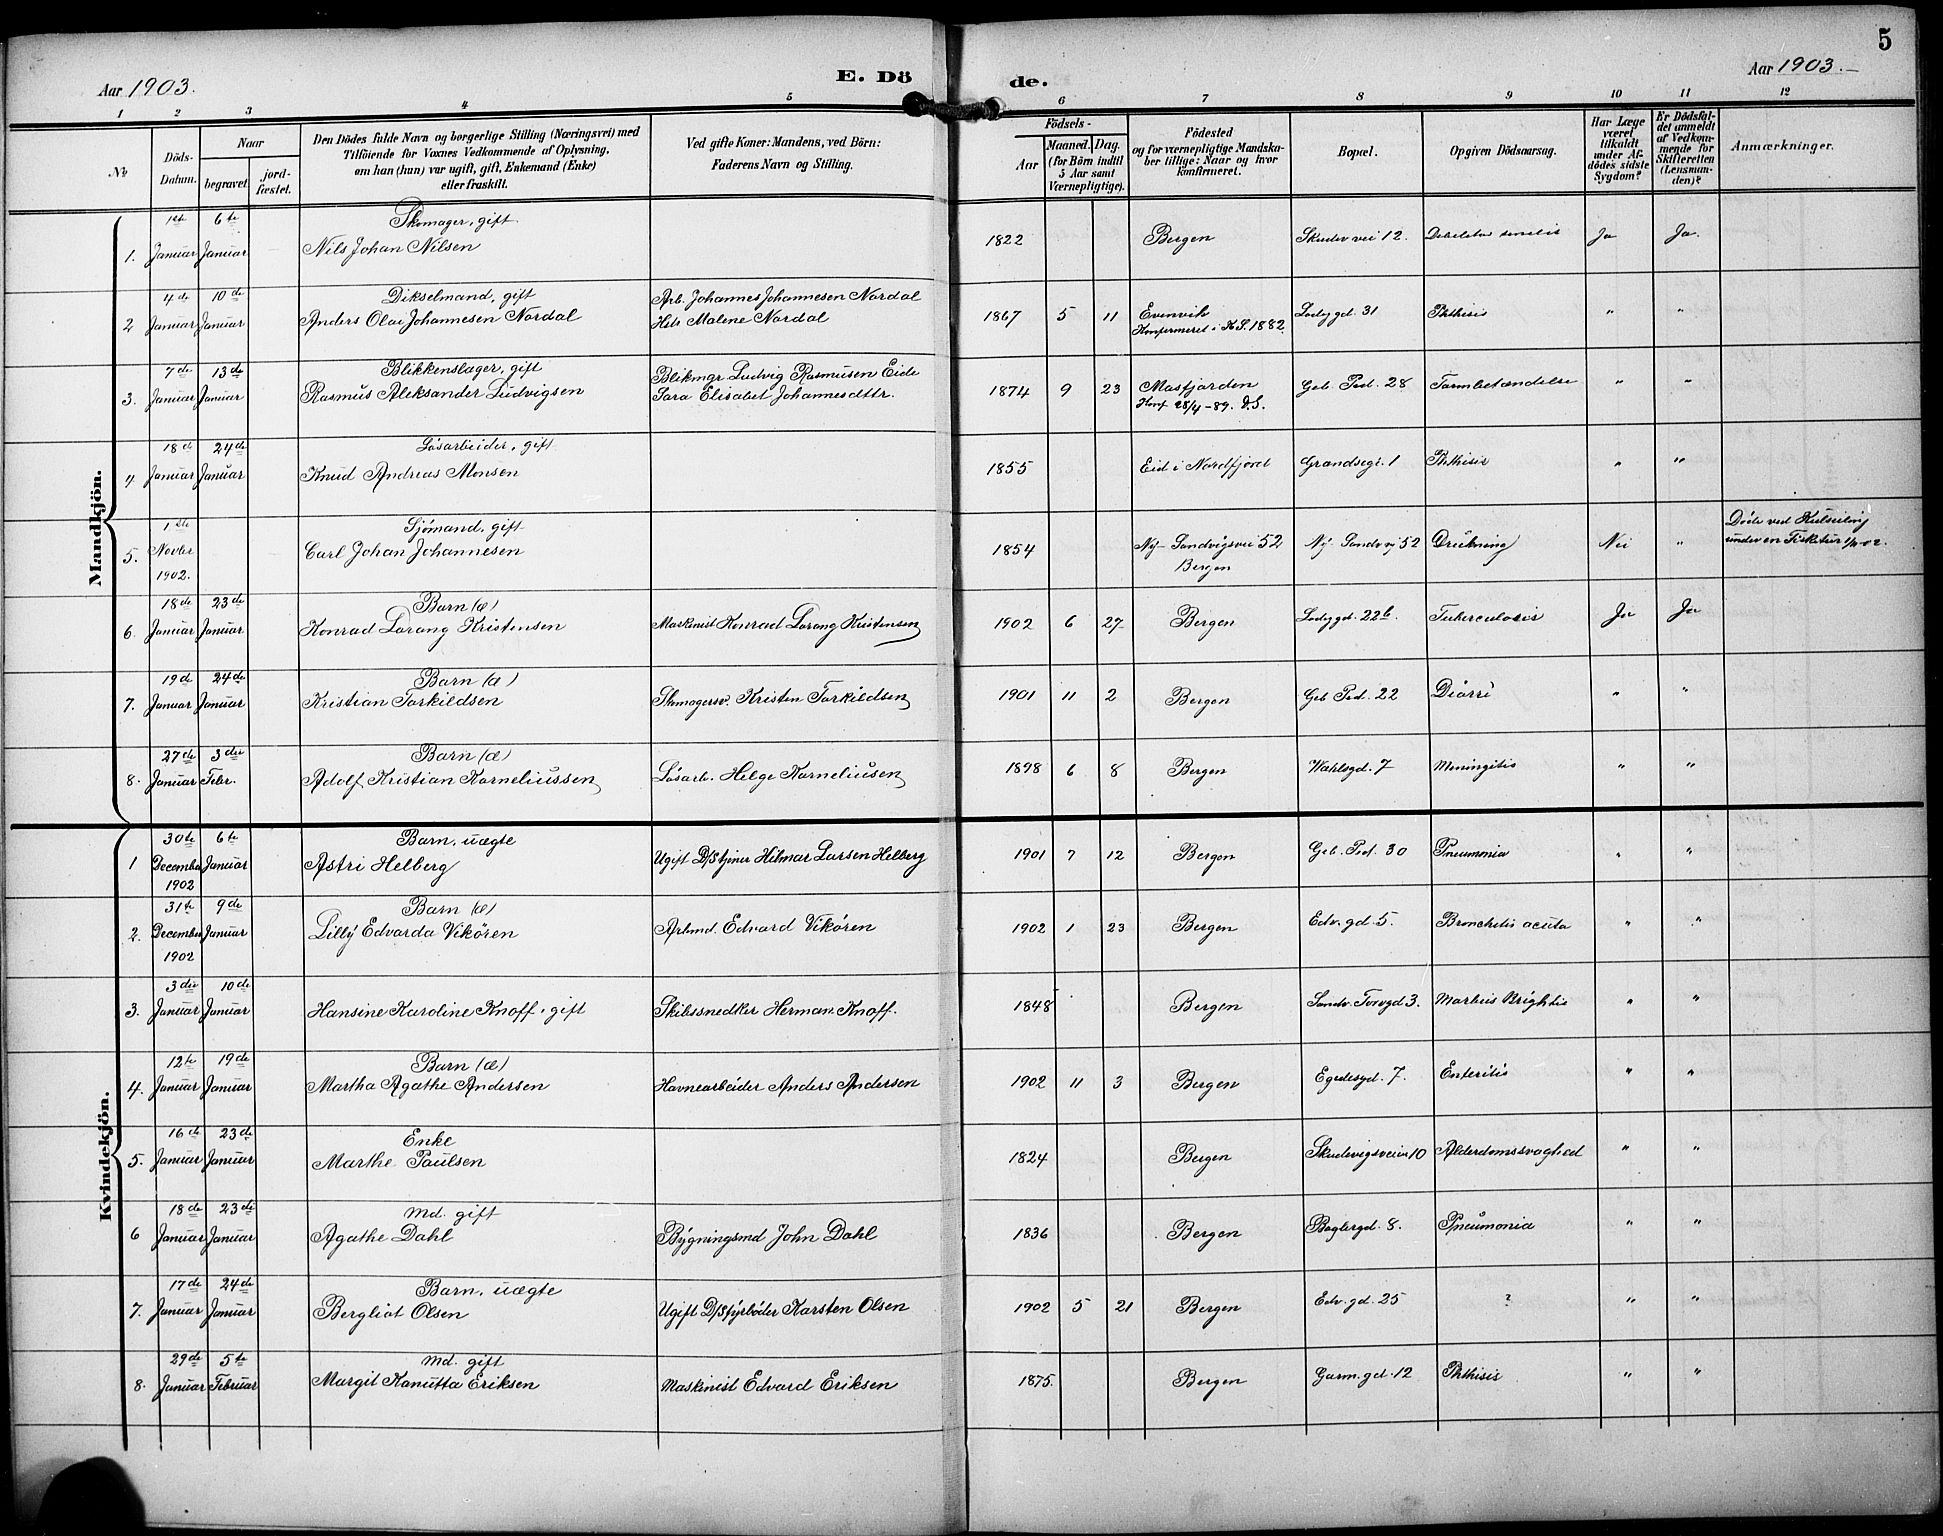 5
Aar 1903. E. Dö de. Aar 1903.
1 2 3 4 5 6 7 8 9 10 11 12
No
Döds-Datum.
Naar
begravet.
jordfæstet.
Den Dödes fulde Navn og borgerlige Stilling (Næringsvei) med Tilföiende for Voxnes Vedkommende af Oplysning, om han (hun) var ugift, gift, Enkemand (Enke) eller fraskilt.
Ved gifte Koner: Mandens, ved Börn: Faderens Navn og Stilling.
Födsels-
Aar
Maaned. Dag. (for Börn indtil 5 Aar samt Værnepligtige).
Födested og for værnepligtige Mandskaber tillige: Naar og hvor konfirmeret.
Bopæl.
Opgiven Dödsaarsag.
Har Læge været tilkaldt under Afdödes sidste Sygdom?
Er Dödsfaldet anmeldt af Vedkommende for Skifteretten (Lensmanden)?
Anmærkninger.
Mandkjön.
1. 1ste Januar 6te Januar Skomager, gift Nils Johan Nilsen 1822 Bergen Skudev vei 12. senilis Ja Ja.
2 4de Januar 10de Januar Dikselmand, gift Anders Olai Johannesen Nordal Arb. Johannes Johannesen Nordal Hels Malene Nordal 1867 5 11 Evenvik Konfirmeret i 1882. Ladegd. 31 Phthisis " "
3. 7de Januar 13de Januar Blikkenslager, gift Rasmus Aleksander Ludvigsen Blikmgr Ludvig Rasmusen Eide Sara Elisabet Johannesdttr. 1874 9 23 Masfjorden Konf 28/4-89. D.S. Geb. Pod. 28 Tarmbetændelse " "
4 18de Januar 24de Januar Lösarbeider, gift Knud Andreas Monsen 1855 Eid i Nordfjord 1 Phthisis " "
5. 1ste Novbr 1902. Sjömand, gift Carl Johan Johannesen 1854 Ny-Sandvigsvei 52 Bergen Ny-Sandvg 52 Drukning Nei " Döde ved under en Fisketur 1/11-02.
6. 18de Januar 23de Januar Barn (æ) Konrad Lorang Kristensen Maskinist Konrad Lorang Kristensen 1902 6 27 Bergen Ladegd. 22b. Tuberculosis Ja Ja
7. 19de Januar 24de Januar Barn (æ) Kristian Torkildsen Skmagersv. Kristen Torkildsen 1901 11 2 Bergen Geb Pod. 22 Diarré " "
8. 27de Januar 3die Febr. Barn (æ) Adolf Kristian Korneliussen Lösarb. Helge Korneliusen 1898 6 8 Bergen Wahlsgd. 7 Meningitis " "
Kvindekjön.
1 30te December 1902 6te Januar Barn, uægte Astri Helberg Ugift D/Stjener Hilmar Larsen Helberg 1901 7 12 Bergen Geb. Pod. 30 Pneumonia " "
2. 31te December 1902 9de Januar Barn (æ) Lilly Edvarda Vikören Arbmd. Edvard Vikören 1902 1 23 Bergen Edv. gd 5. Bronchitis acuta " "
3. 3die Januar 10de Januar Hansine Karoline Knoff, gift Skibssnedker Herman Knoff. 1848 Bergen Sandv. Torvgd 3. Morbus Brightii " "
4. 12te Januar 19de Januar Barn (æ) Martha Agathe Andersen Havnearbeider Anders Andersen 1902 11 3 Bergen Egedesgd. 7. Enteritis " "
5. 16de Januar 23de Januar Enke Marthe Paulsen 1824 Bergen Skudevigsveien 10 Alderdomssvaghed " "
6 18de Januar 23de Januar Md. gift Agathe Dahl Bygningsmd John Dahl 1836 Bergen Baglergd. 8. Pneumonia " "
7. 17de Januar 24de Januar Barn, uægte Bergliot Olsen Ugift D/Sfyrböder Karsten Olsen 1902 5 21 Bergen Edv. gd. 25 ? " "
8. 29de Januar 5te Februar Md. gift Margit Kanutta Eriksen Maskinist Edvard Eriksen 1875 Bergen Garm. gd. 12 Phthisis " "